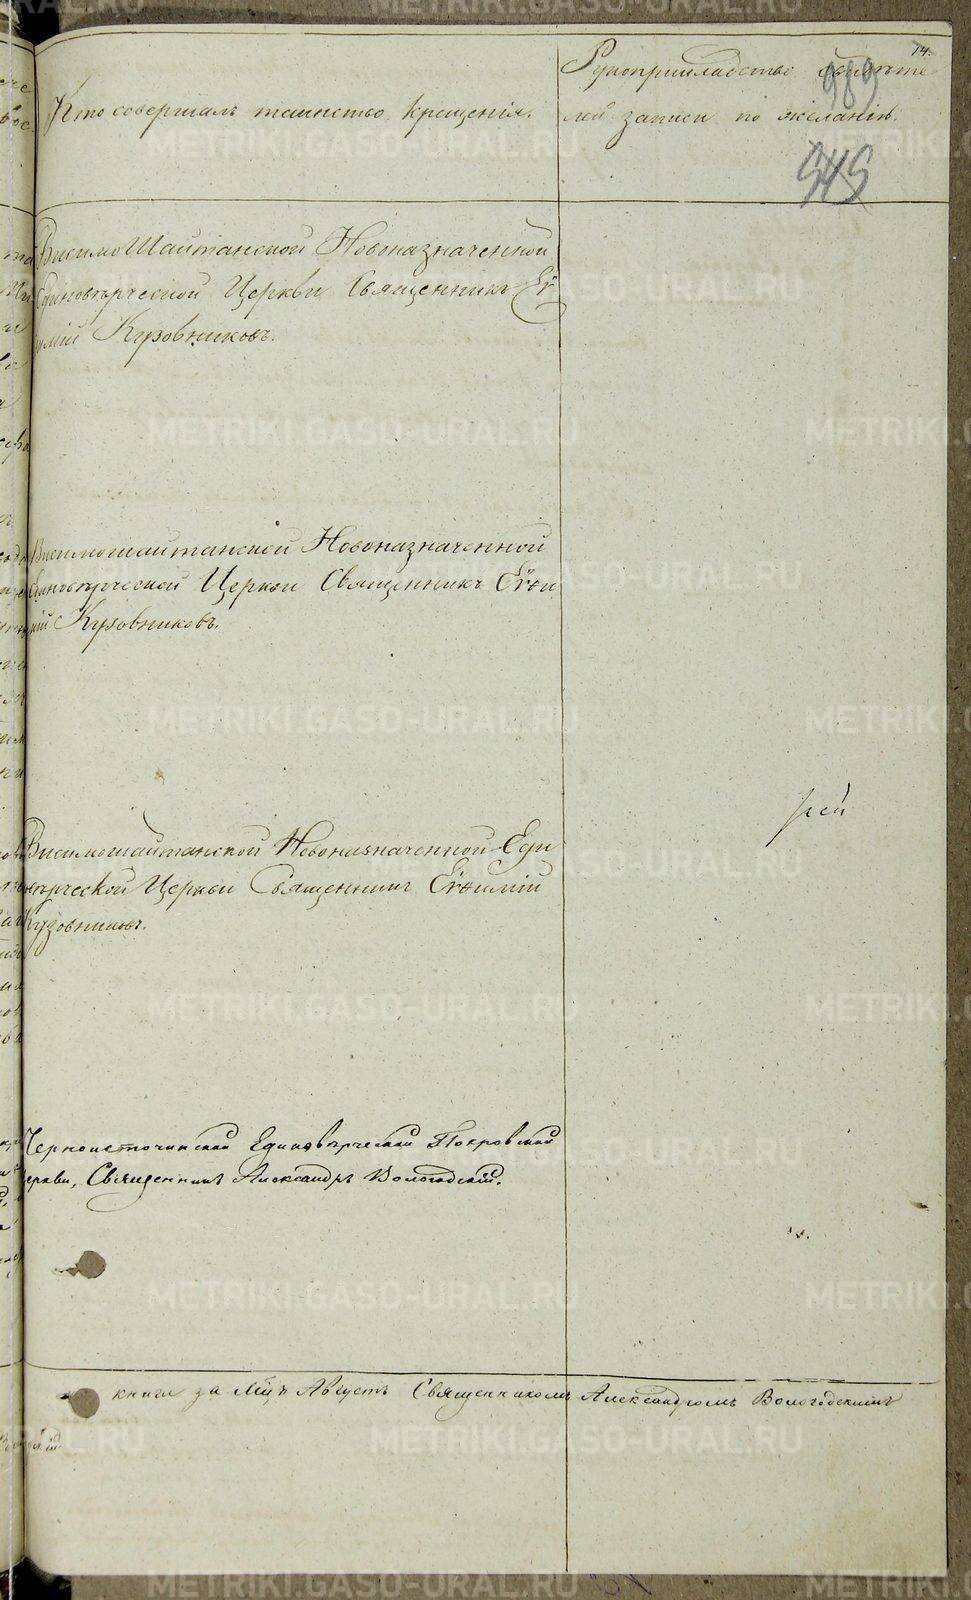 14.
Рукоприкладство свидѣте
989
Кто совершалъ таинство крещенія.
лей записи по желанію.
545
ВисимоШайтанской Новоназначенной
Единовѣрческой Церкви Священникъ Еѵ
ѳимій Кузовниковъ.
Висимошайтанской Новоназначенной
Единовѣрческой Церкви Священникъ Еѵѳи
мій Кузовниковъ.
рей
Висимошайтанской Новоназначенной Еди
новѣрческой Церкви Священникъ Еѵѳимій
Кузовниковъ.
Черноисточинской Единовѣрческой Покровской
Церкви, Священникъ Александръ Вологодскій.
книга за Мцъ Августъ Священникомъ Александромъ Вологодскимъ
METRIKI.GASO-URAL.RU